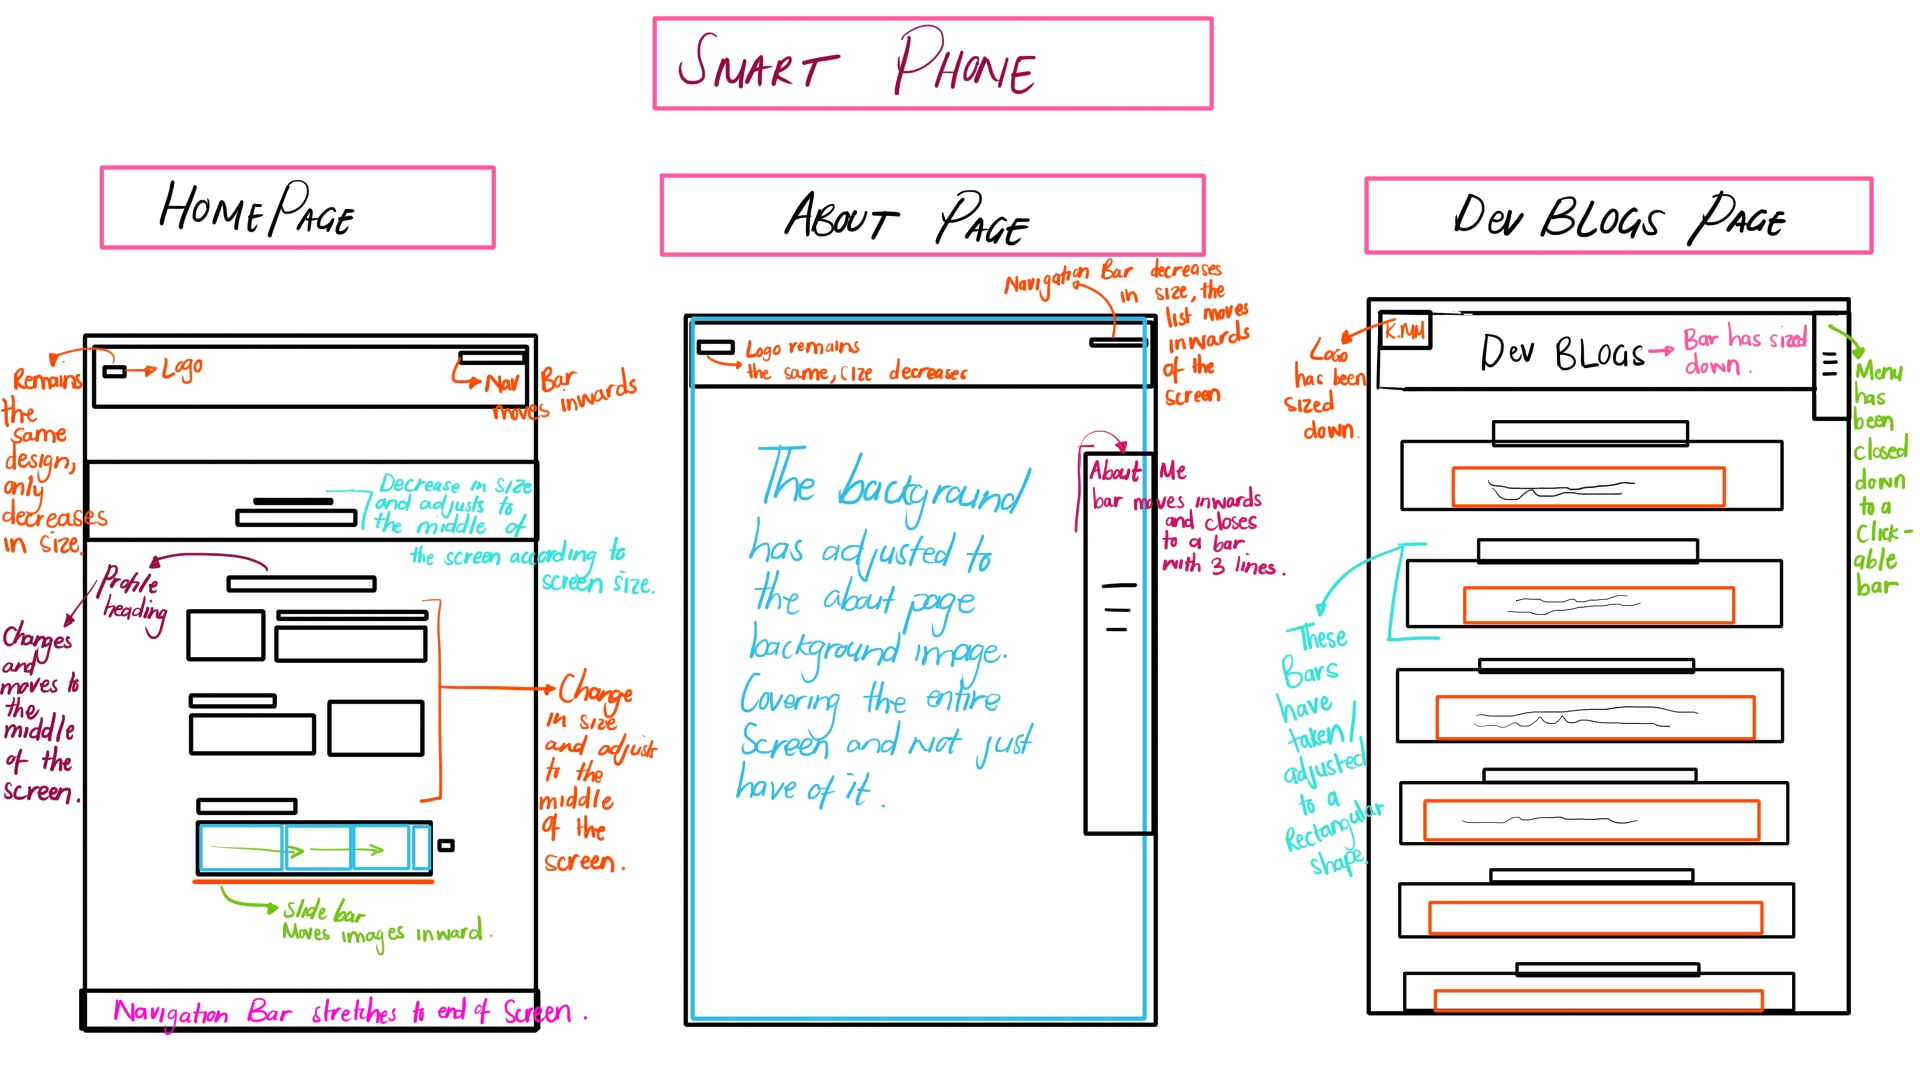 SMART PHONE
HOMEPAGE
Remains
the
same
design,
only
decreases
in size.
Logo
Nav Bar
moves inwards
Decrease in size
and adjusts to
the middle of
the screen according to
screen size.
Profile
heading
Changes
and
moves to
the
middle
of the
screen.
Change
in size
and adjusts
to the
middle
of the
screen.
Slide bar
Moves images inward.
Navigation Bar stretches to end of Screen.
ABOUT PAGE
Navigation Bar decreases
in size, the
list moves
inwards
of the
screen.
Logo remains
the same, size decreases
The background
has adjusted to
the about page
background image.
Covering the entire
Screen and not just
have of it.
About Me
bar moves inwards
and closes
to a bar
with 3 lines.
DEV BLOGS PAGE
K.NM
Logo
has been
sized
down.
DEV BLOGS
Bar has sized
down.
Menu
has
been
closed
down
to a
click-
able
bar
These
Bars
have
taken/
adjusted
to a
Rectangular
shape.